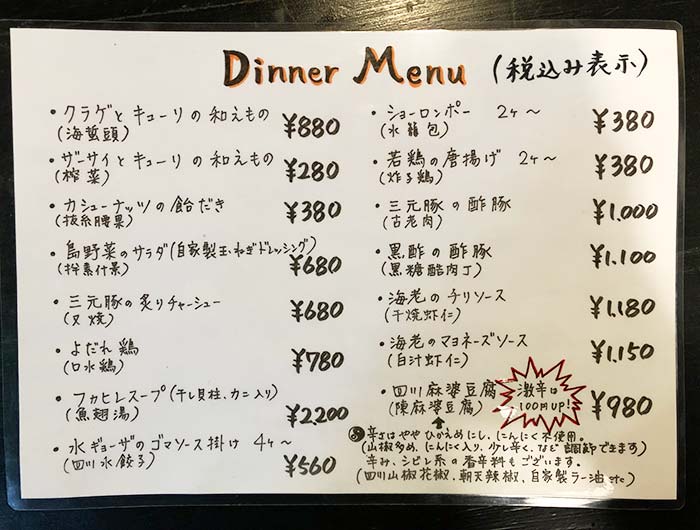 Dinner Menu (税込み表示)
・クラゲとキューリの和えもの ¥880
(海蜇頭)
・ザーサイとキューリの和えもの ¥280
(榨菜)
・カシューナッツの飴だき ¥380
(抜糸腰果)
・島野菜のサラダ(自家製玉ねぎドレッシング) ¥680
(拌素什景)
・三元豚の炙りチャーシュー ¥680
(叉焼)
・よだれ鶏 ¥780
(口水鶏)
・フカヒレスープ(干し貝柱、カニ入り) ¥2,200
(魚翅湯)
・水ギョーザのゴマソース掛け 4ヶ〜 ¥560
(四川水餃子)
・ショーロンポー 2ヶ〜 ¥380
(水籠包)
・若鶏の唐揚げ 2ヶ〜 ¥380
(炸子鶏)
・三元豚の酢豚 ¥1,000
(古老肉)
・黒酢の酢豚 ¥1,100
(黒糖醋肉丁)
・海老のチリソース ¥1,180
(干焼虾仁)
・海老のマヨネーズソース ¥1,150
(白汁虾仁)
・四川麻婆豆腐 ¥980
(陳麻婆豆腐)
激辛は
100円UP!
辛さはややひかえめにし、にんにく不使用。
(山椒多め、にんにく入り、少し辛く、など調節できます)
辛み、シビレ系の香辛料もございます。
(四川山椒花椒、朝天辣椒、自家製ラー油etc)